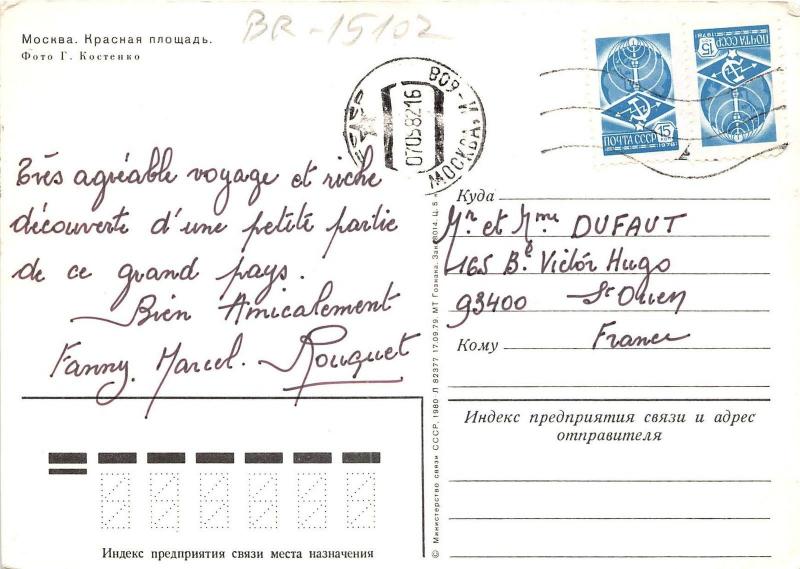 BR-15102
Москва. Красная площадь.
Фото Г. Костенко
809-И
МОСКВА
07058216
ПОЧТА СССР
15
1976
ПОЧТА СССР
15
1976
Très agréable voyage et riche
découverte d'une petite partie
de ce grand pays.
Bien Amicalement
Fanny, Marcel. Rouquet
Куда
Mr et Mme DUFAUT
165 Bd Victor Hugo
93400 St Ouen
Кому
France
Индекс предприятия связи и адрес
отправителя
Индекс предприятия связи места назначения
© Министерство связи СССР, 1980 Л 82377 17.09.79. МТ Гознака. Зак.